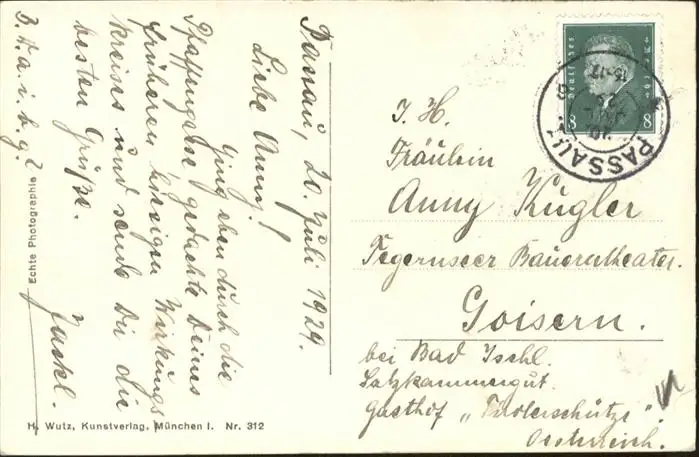 Passau, 20. Juli 1929.
Liebe Anny!
Ging eben durch die
Pfaffengasse gedachte Deines
früheren hiesigen Wirkungs
kreises und sende Dir die
besten Grüße.
B. W. a. i. b. g.?
I. H.
Fräulein
Anny Kugler
Tegernseer Bauerntheater.
Goisern.
bei Bad Ischl.
Salzkammergut.
Gasthof „Tirolerschütze".
Oesterreich.
Deutsches Reich
8 8
PASSAU
20.
15-17
Echte Photographie
H. Wutz, Kunstverlag, München I. Nr. 312